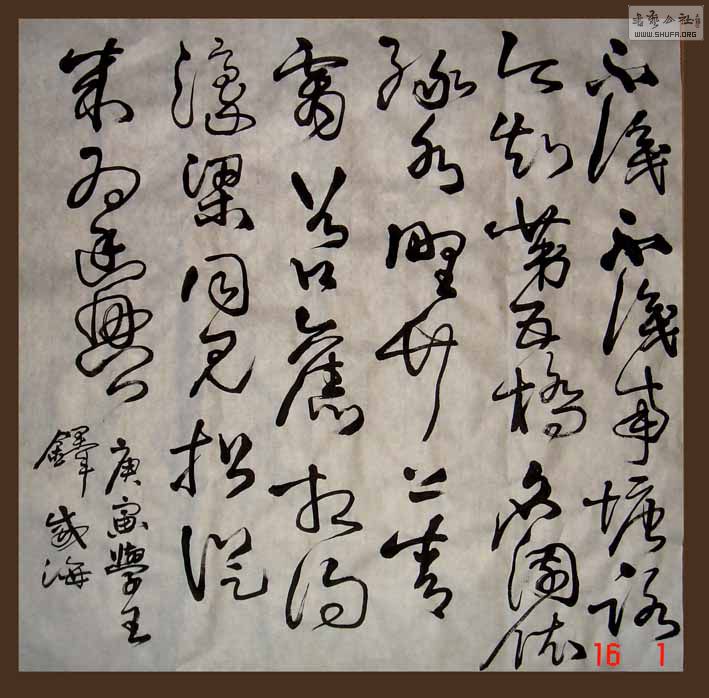 不識不識南塘路
今知第五橋名園依
綠水野竹上青
霄谷口舊相得
濠梁同見招從
來為幽興
庚寅學王
鐸 威海
書藝公社
WWW.SHUFA.ORG
16 1